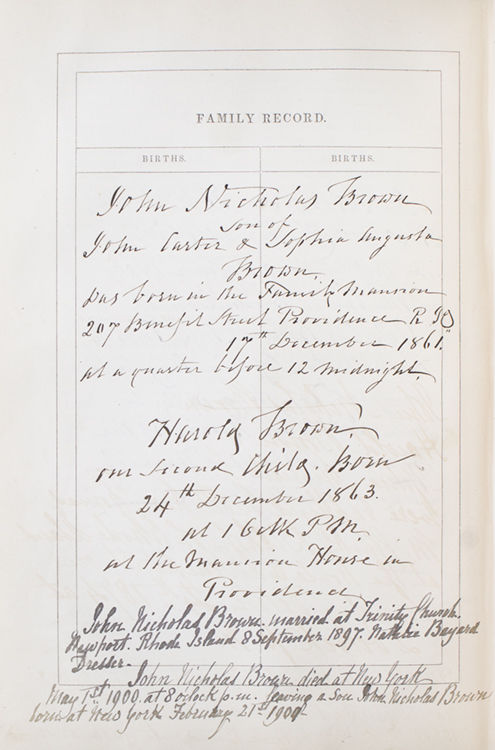 FAMILY RECORD.
BIRTHS. BIRTHS.
John Nicholas Brown
Son of
John Carter & Sophia Augusta
Brown.
was born in the Family Mansion
207 Benefit Street Providence R I
17th December 1861.
at a quarter before 12 midnight.
Harold Brown
our Second Child. Born
24th December 1863.
at 1 Oclk P.M.
at the Mansion House in
Providence
John Nicholas Brown married at Trinity Church.
Newport. Rhode Island 8 September 1897. Natalie Bayard
Dresser.
John Nicholas Brown died at New York
May 1st 1900. at 8 oclock p.m. leaving a son John Nicholas Brown
born at New York February 21st 1900.